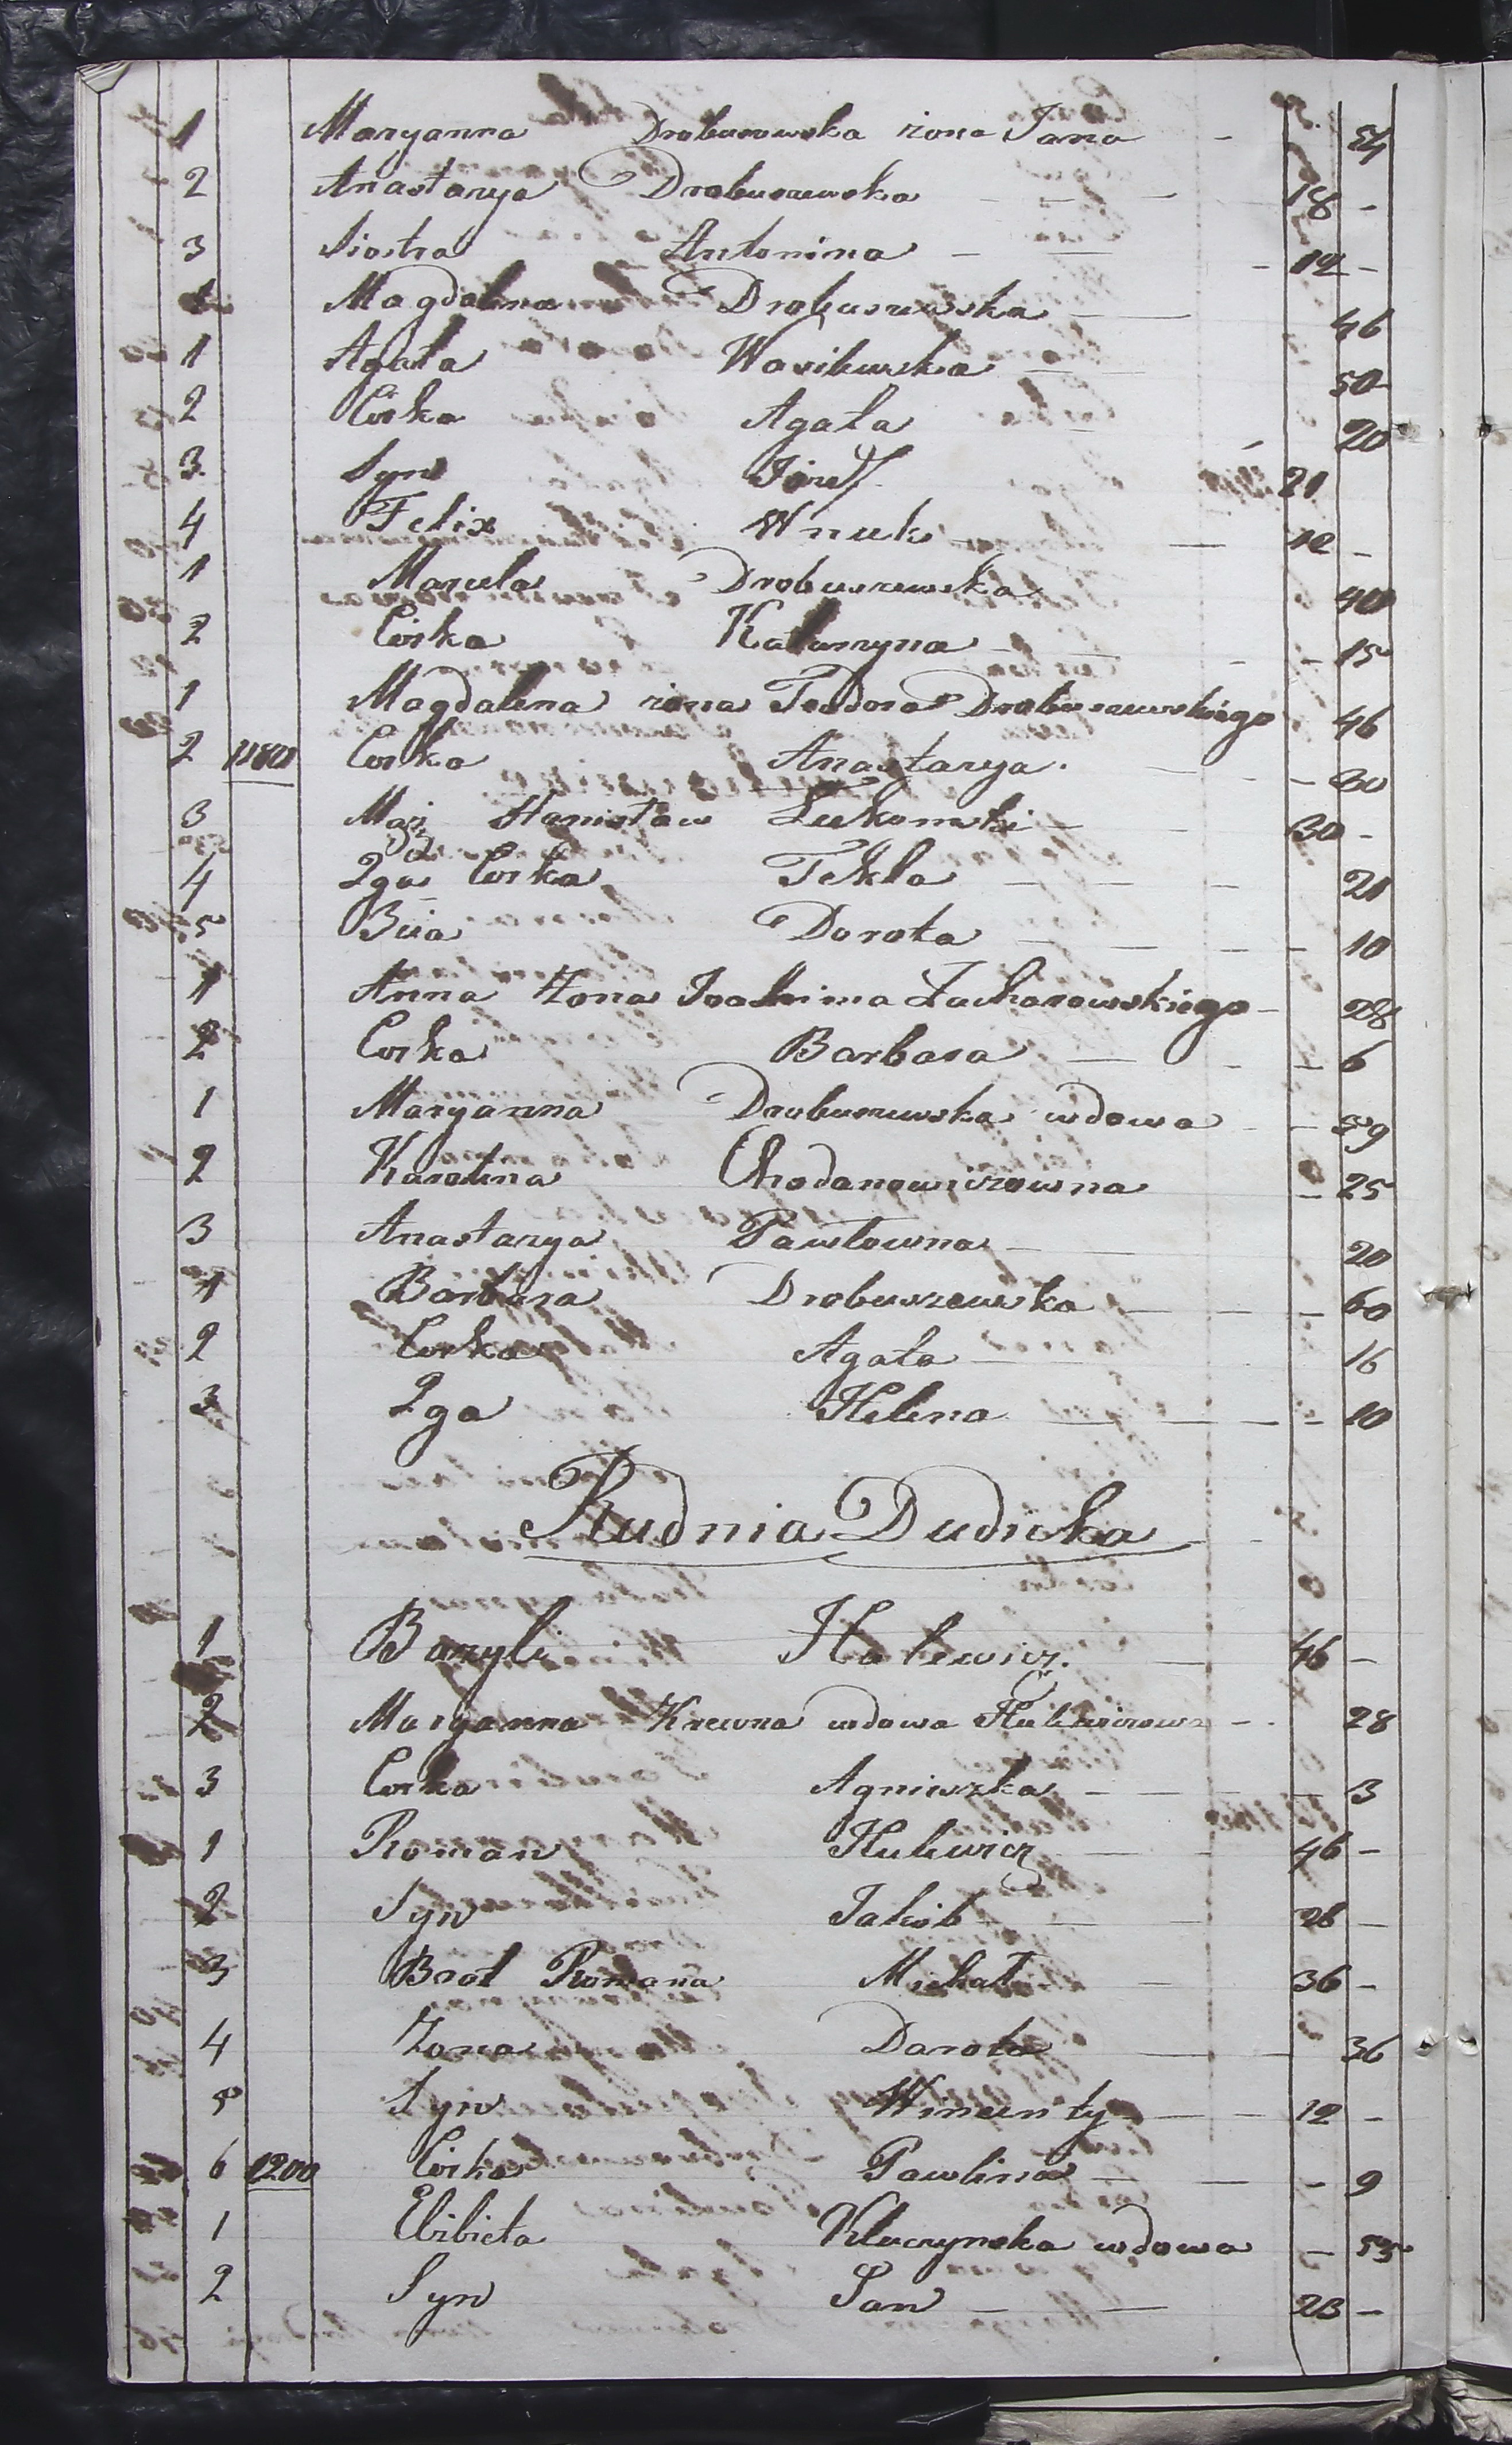 1 Maryanna Drobuszewska żona Jana - 54
2 Anastazya Drobuszewska - 18 -
3 Siostra Antonina - 12 -
Magdalena Drobuszewska - 46
1 Agata Wasilewska - 50
2 Corka Agata 20
3 Syn Józef 21
4 Felix Wnuk - 12 -
1 Marcela Drobuszewska 40
2 Corka Katarzyna - 15
1 Magdalena żona Teodora Drobuszewskiego 46
2 1180 Corka Anastazya - 30
3 Mąż Stanisław Łukomski - 30 -
4 2ga Corka Tekla - 21
5 3cia Dorota - 10
1 Anna Żona Joachima Zacharowskiego - 28
2 Corka Barbara - 6
1 Maryanna Drobuszewska wdowa - 59
2 Karolina Chodanowiczowna - 25
3 Anastazya Pawłowna - 20
1 Barbara Drobuszewska - 60
2 Corka Agata - 16
3 2ga Helena - 10
Rudnia Dudicka
1 Bazyli Holewicz - 46 -
2 Maryanna Krewna wdowa Hulewiczowa - 28
3 Corka Agniszka - 3
1 Roman Hulewicz - 46 -
2 Syn Jakób - 28 -
3 Brat Romana Michał - 36 -
4 Żona Darota - 36
5 Syn Wincenty - 12 -
6 1200 Corka Pawlina - 9
1 Elzbieta Kluczynska wdowa - 55
2 Syn Jan - 23 -